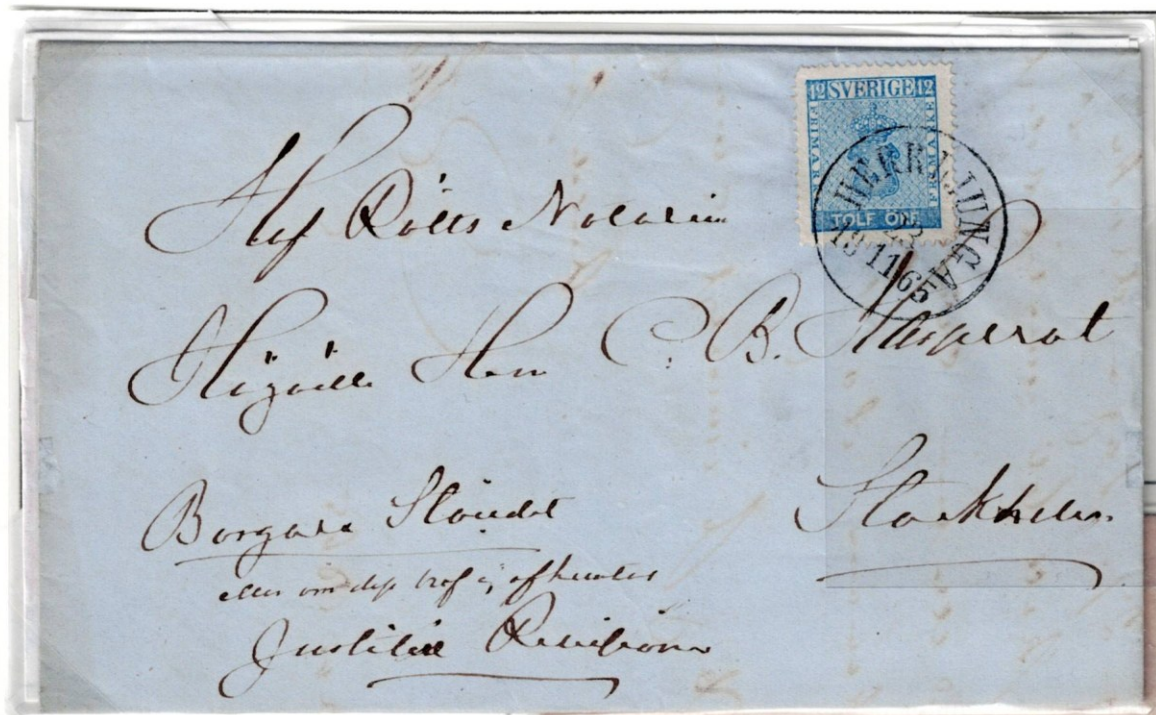 12 SVERIGE 12
FRIMÄRKE FRIMÄRKE
TOLF ÖRE
HERRLJUNGA
23
13 11 65
Hof Rätts Notarien
Högädle Herr C. B.
Stockholm
Borgare Ståndet
eller om dess bref ej afhemtas
Justitiæ Revision